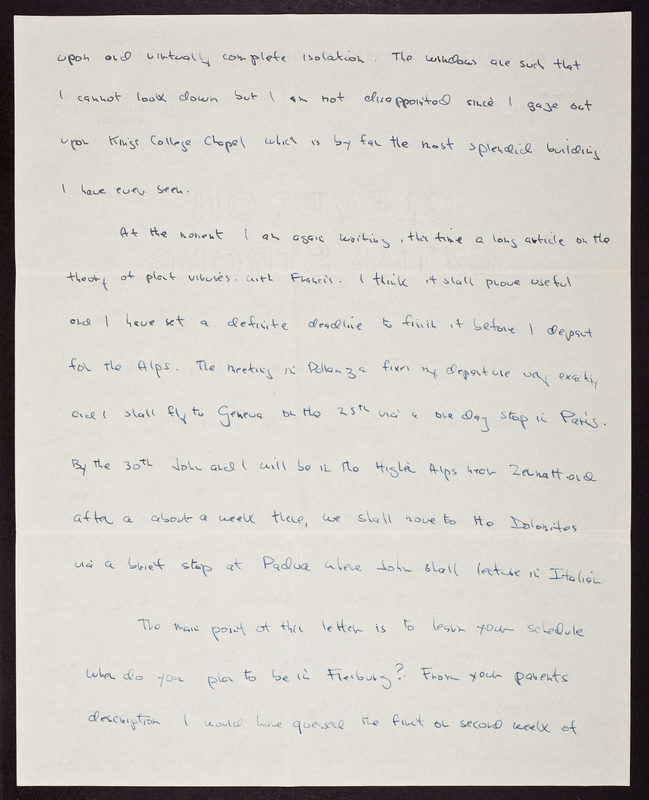 upon and virtually complete isolation. The windows are such that
I cannot look down but I am not disappointed since I gaze out
upon Kings College Chapel which is by far the most splendid building
I have ever seen.
At the moment I am again writing, this time a long article on the
theory of plant viruses. with Francis. I think it shall prove useful
and I have set a definite deadline to finish it before I depart
for the Alps. The meeting in Pallanza fixes my departure very exactly
and I shall fly to Geneva on the 25th via a one day stop in Paris.
By the 30th John and I will be in the Higher Alps near Zermatt and
after a about a week there, we shall move to the Dolomites
via a brief stop at Padua where John shall lecture in Italian
The main point of this letter is to learn your schedule
When do you plan to be in Freiburg? From your parents
description I would have guessed the first or second week of